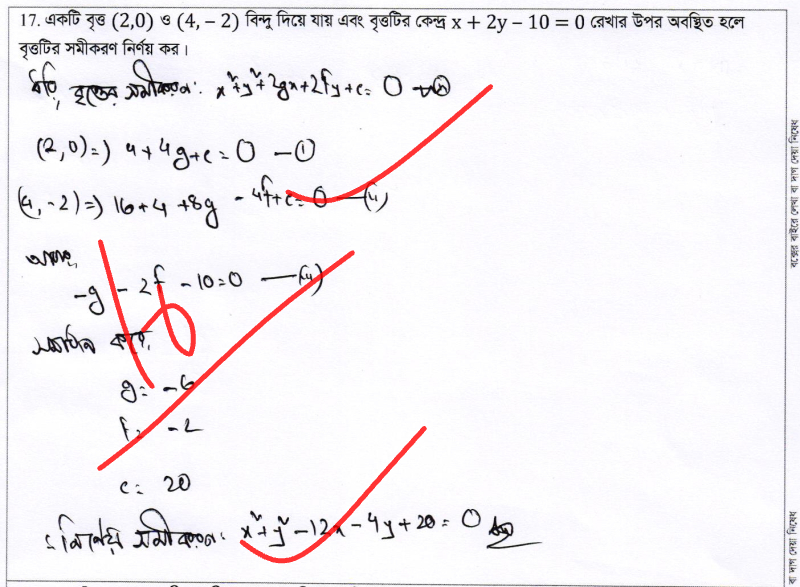 17. একটি বৃত্ত (2,0) ও (4, − 2) বিন্দু দিয়ে যায় এবং বৃত্তটির কেন্দ্র x + 2y − 10 = 0 রেখার উপর অবস্থিত হলে
বৃত্তটির সমীকরণ নির্ণয় কর।
ধরি, বৃত্তের সমীকরণ: x²+y²+2gx+2fy+c= 0
(2,0)=) 4+4g+c=0 —①
(4,-2)=) 16+4+8g -4f+c=0 —(ii)
আবার,
-g -2f -10=0 —(iii)
সমাধান করে,
10
g= -6
f= -2
c= 20
∴ নির্ণেয় সমীকরণ: x²+y²-12x-4y+20=0
বক্সের বাইরে লেখা বা দাগ দেয়া নিষেধ
বা দাগ দেয়া নিষেধ